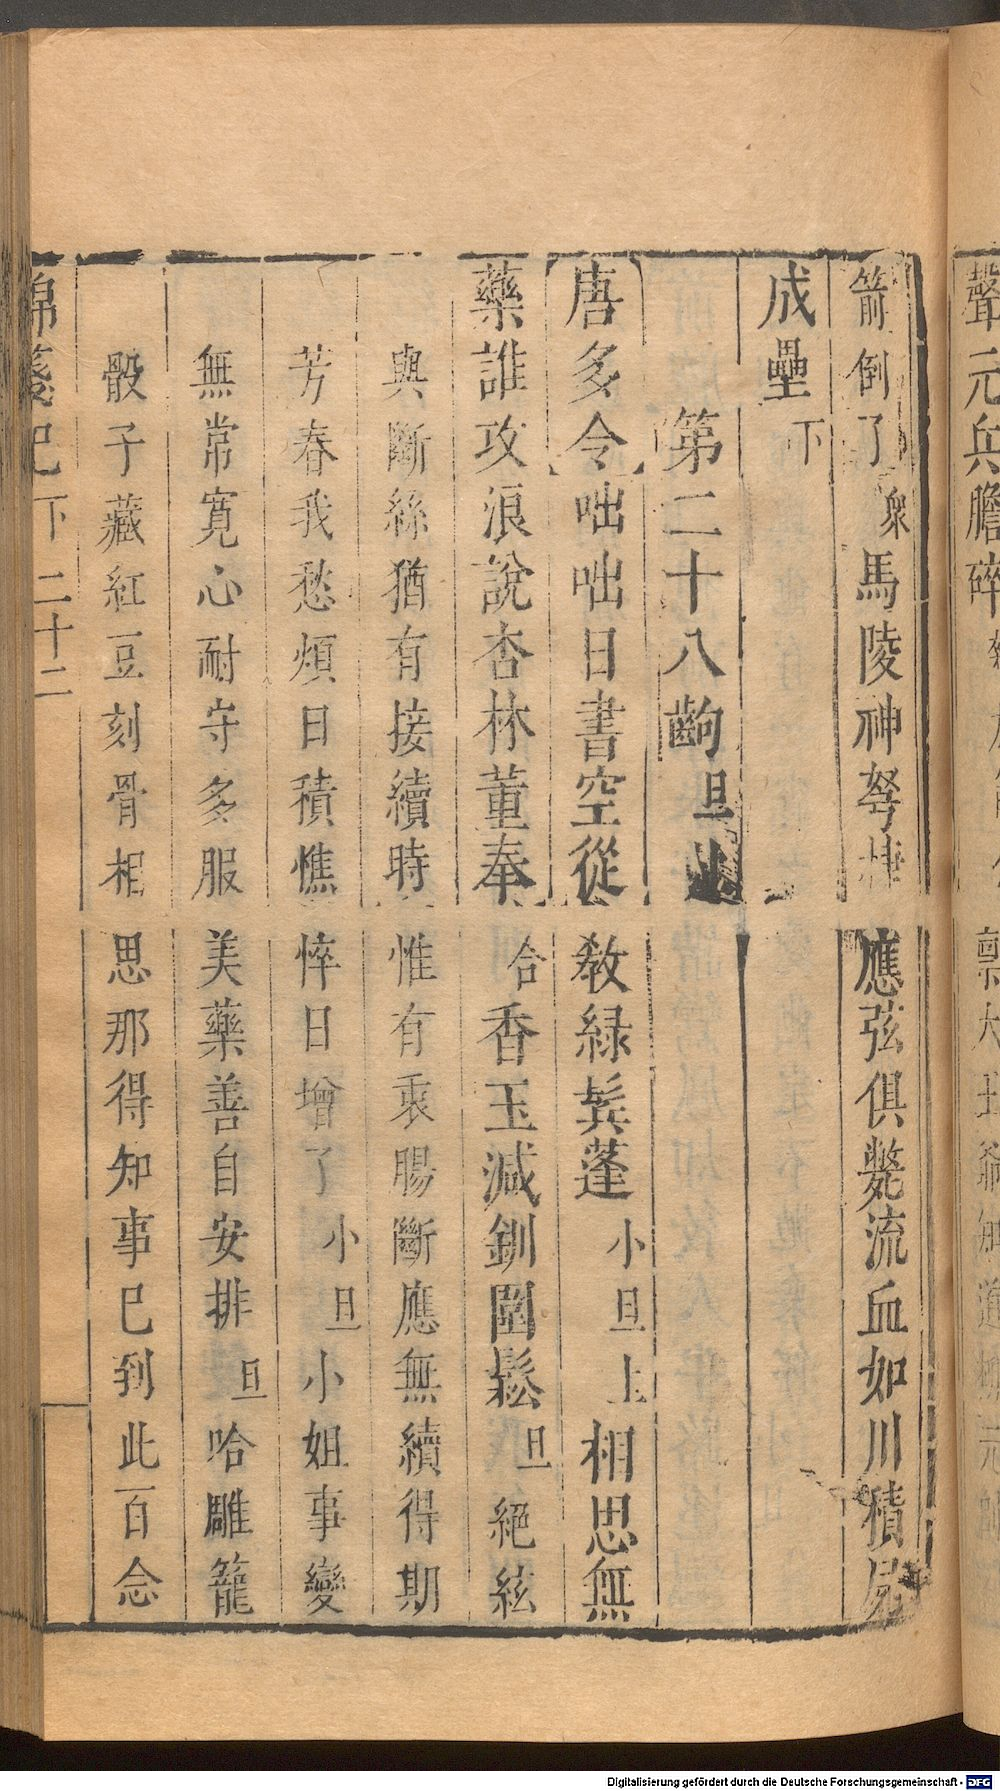 聲元兵膽碎
箭倒了衆馬陵神弩捷應弦俱斃流血如川積屍
成壘下
第二十八齣
唐多令旦上咄咄日書空從教緑鬂蓬小旦上相思無
藥誰攻浪說杏林董奉合香玉減釧圍鬆旦絕絃
與斷絲猶有接續時惟有衷腸斷應無續得期
芳春我愁煩日積憔悴日增了小旦小姐事變
無常寬心耐守多服美藥善自安排旦哈雕籠
骰子藏紅豆刻骨相思那得知事已到此百念
錦箋記下二十二
Digitalisierung gefördert durch die Deutsche Forschungsgemeinschaft - DFG